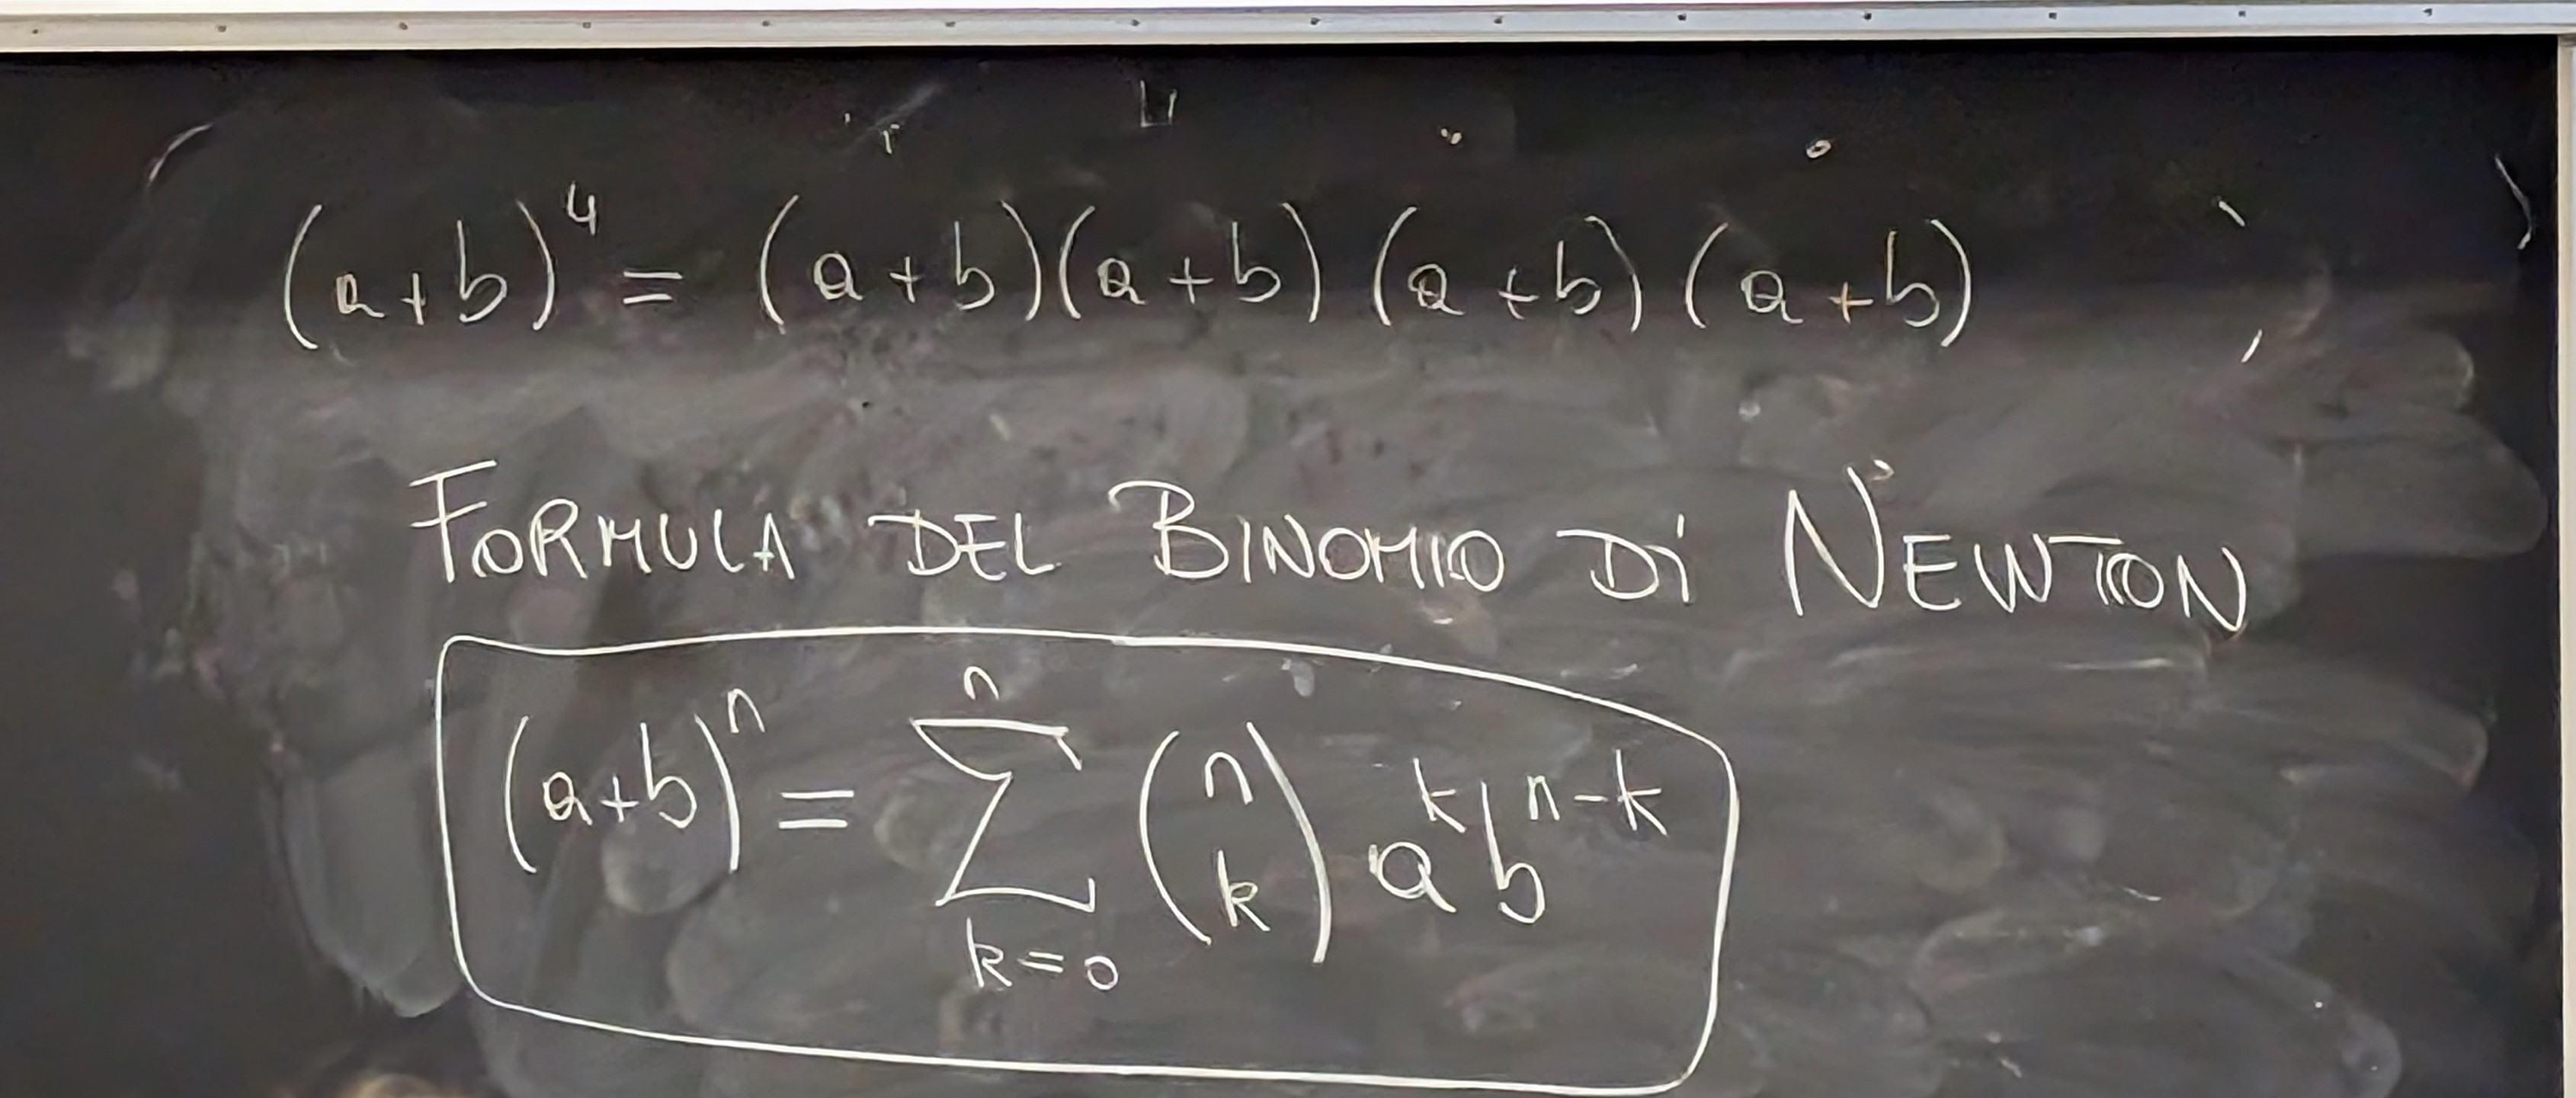 (a+b)⁴ = (a+b)(a+b)(a+b)(a+b)
FORMULA DEL BINOMIO Di NEWTON
(a+b)ⁿ = ∑ₖ₌₀ⁿ (n k) aᵏ bⁿ⁻ᵏ